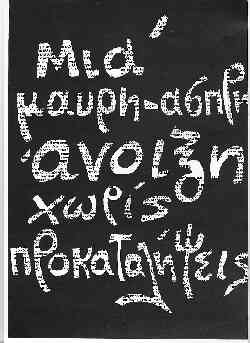 Μιά
μαυρη-άσπρη
άνοιξη
χωρίς
προκαταλήψεις